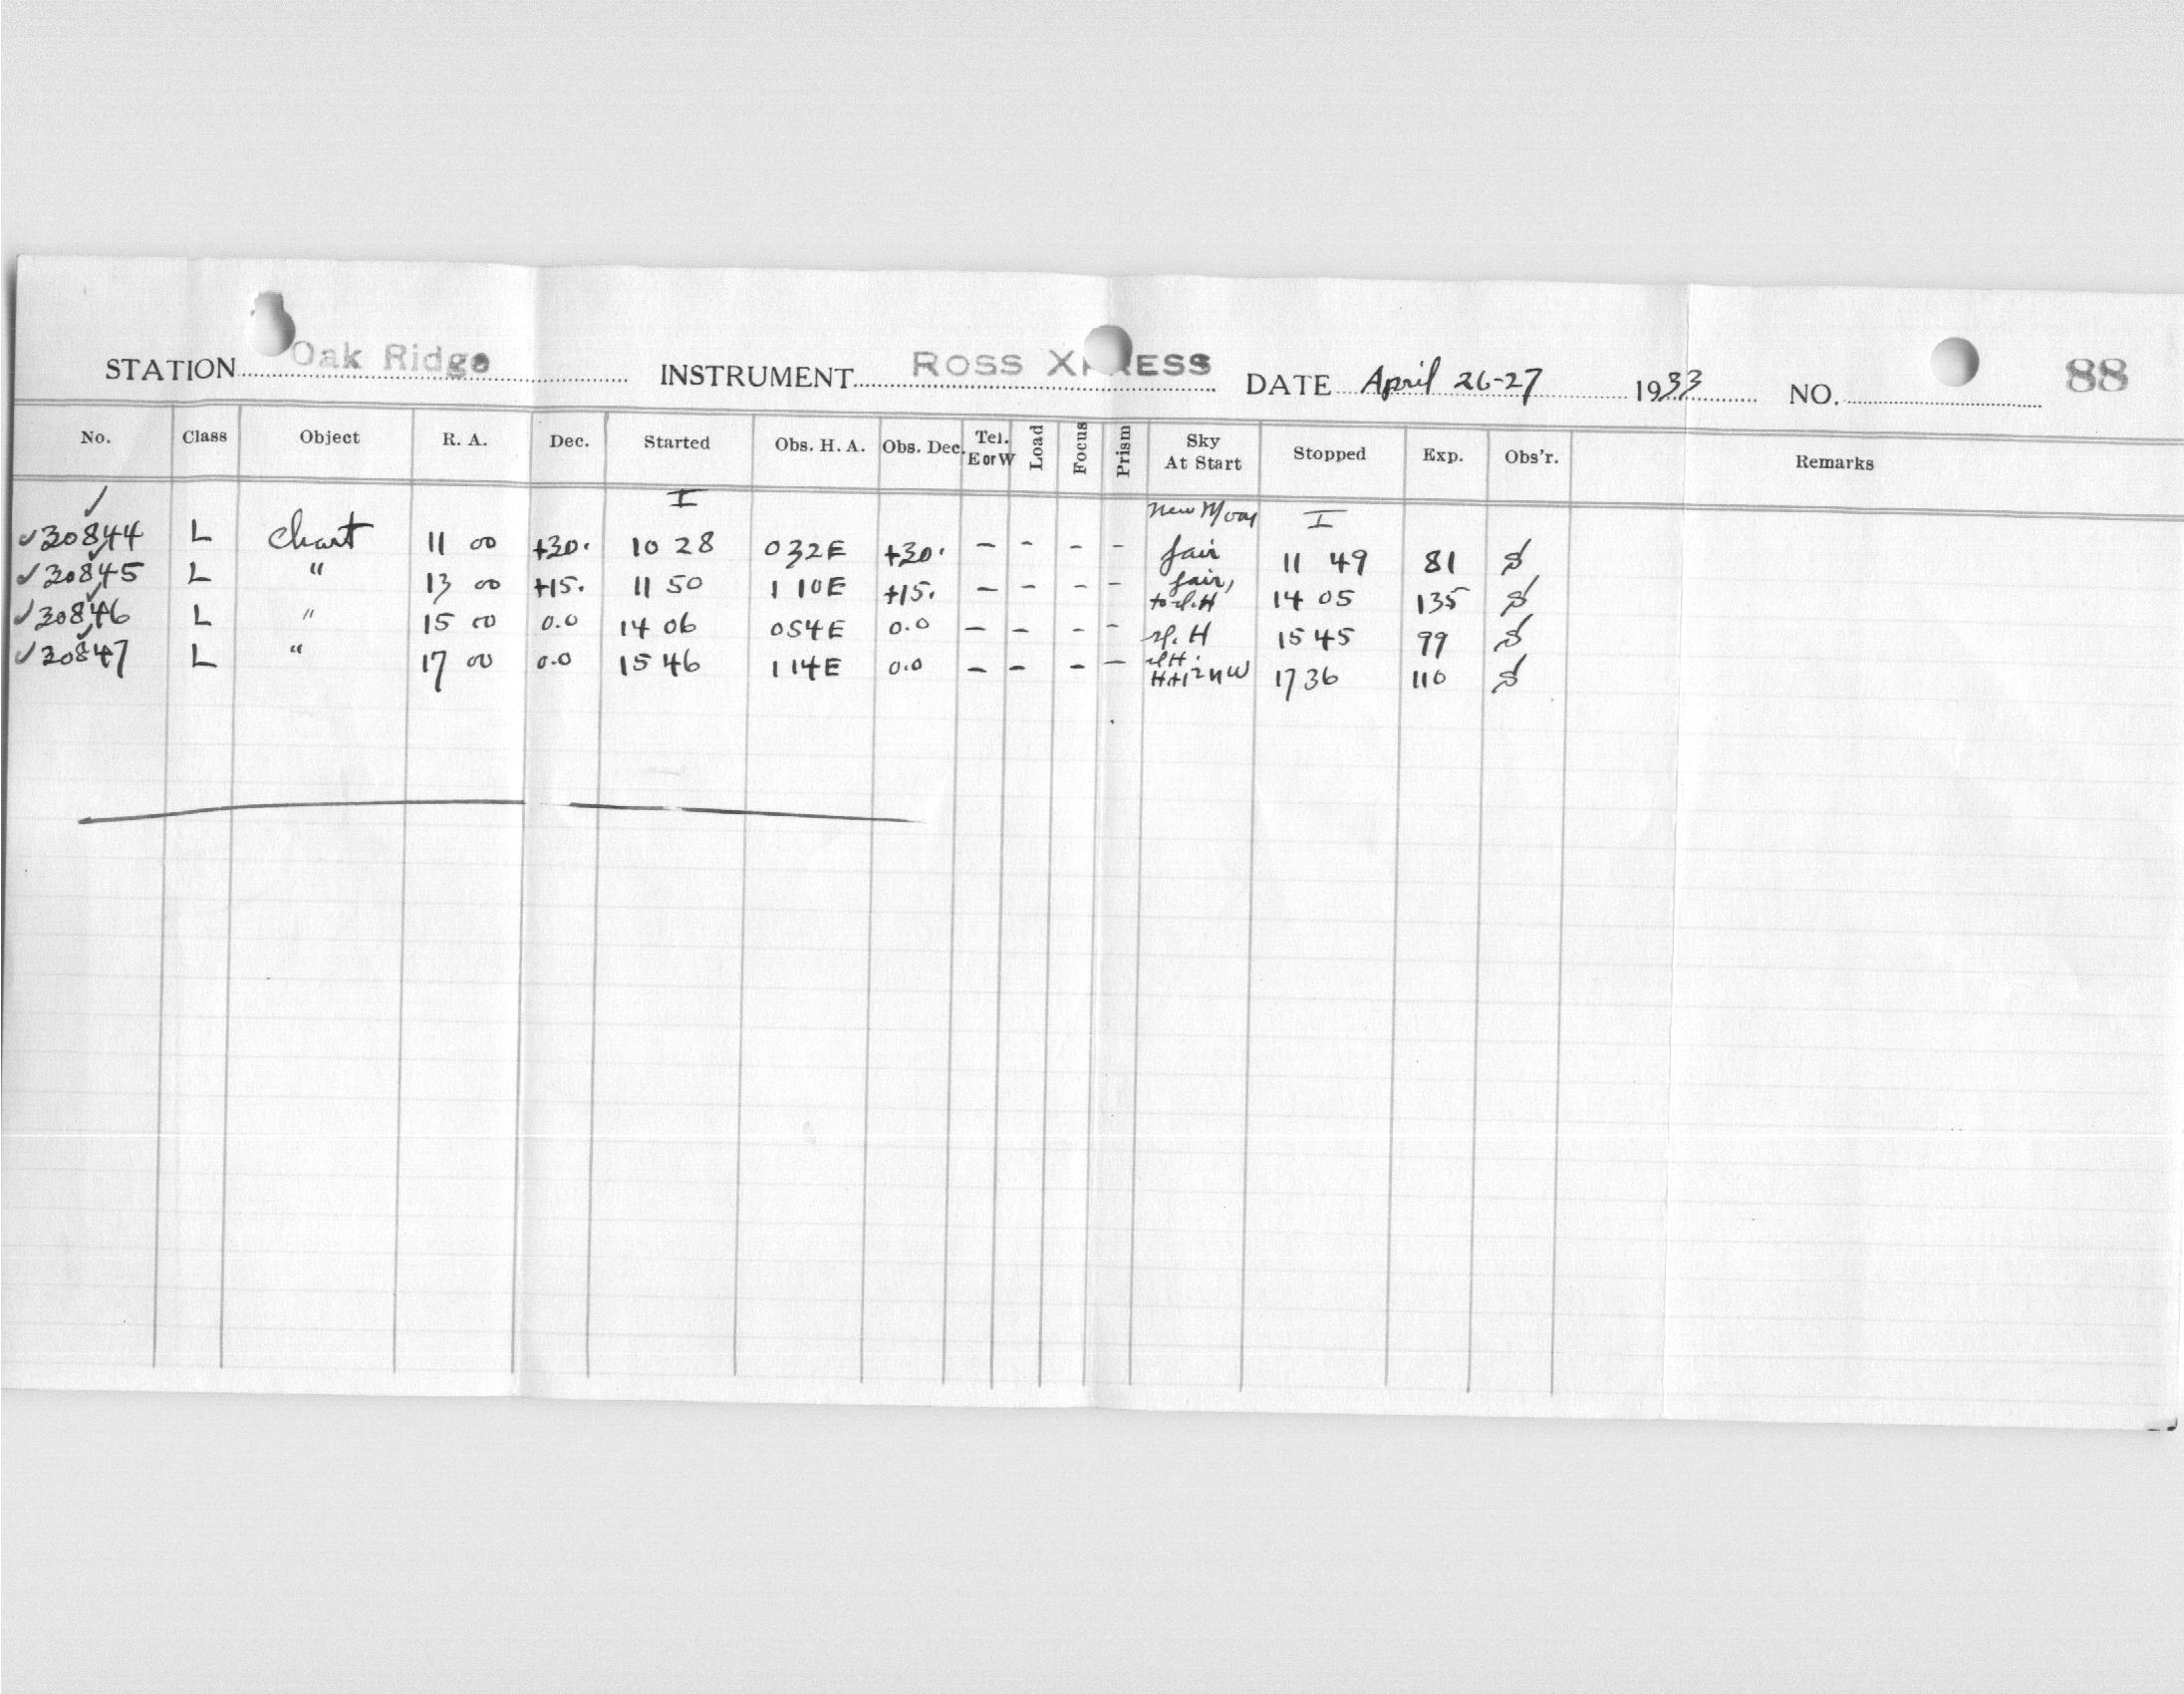 STATION Oak Ridge INSTRUMENT ROSS XPRESS DATE April 26-27 1933 NO. 88
No. Class Object R. A. Dec. Started Obs. H. A. Obs. Dec. Tel. E or W Load Focus Prism Sky At Start Stopped Exp. Obs'r. Remarks
I New Moon I
30844 L Chart 11 00 +30. 10 28 0 32 E +30. - - - - fair 11 49 81 S
30845 L " 13 00 +15. 11 50 1 10 E +15. - - - - fair, to H 14 05 135 S
30846 L " 15 00 0.0 14 06 0 54 E 0.0 - - - - H 15 45 99 S
30847 L " 17 00 0.0 15 46 1 14 E 0.0 - - - - NW 17 36 110 S